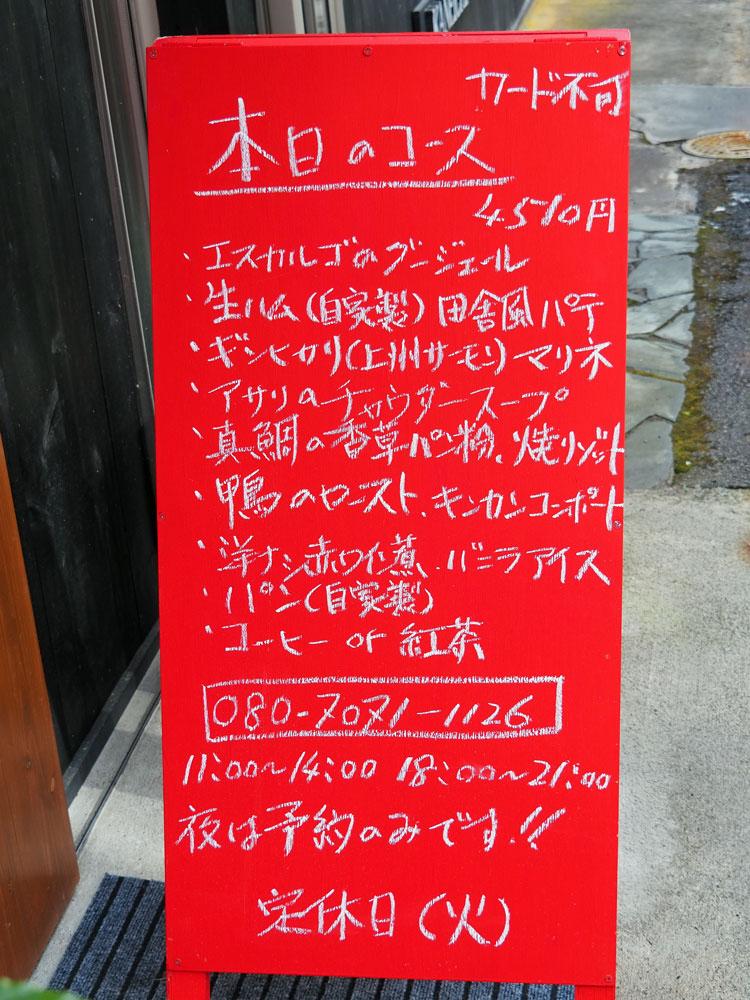 カード不可
本日のコース
4510円
・エスカルゴのグージェール
・生ハム(自家製)田舎風パテ
・ギンヒカリ(上州サーモン)マリネ
・アサリのチャウダースープ
・真鯛の香草パン粉、焼リゾット
・鴨のロースト、キンカンコンポート
・洋ナシ赤ワイン煮、バニラアイス
・パン(自家製)
・コーヒー or 紅茶
080-7071-1126
11:00~14:00 18:00~21:00
夜は予約のみです!!
定休日(火)